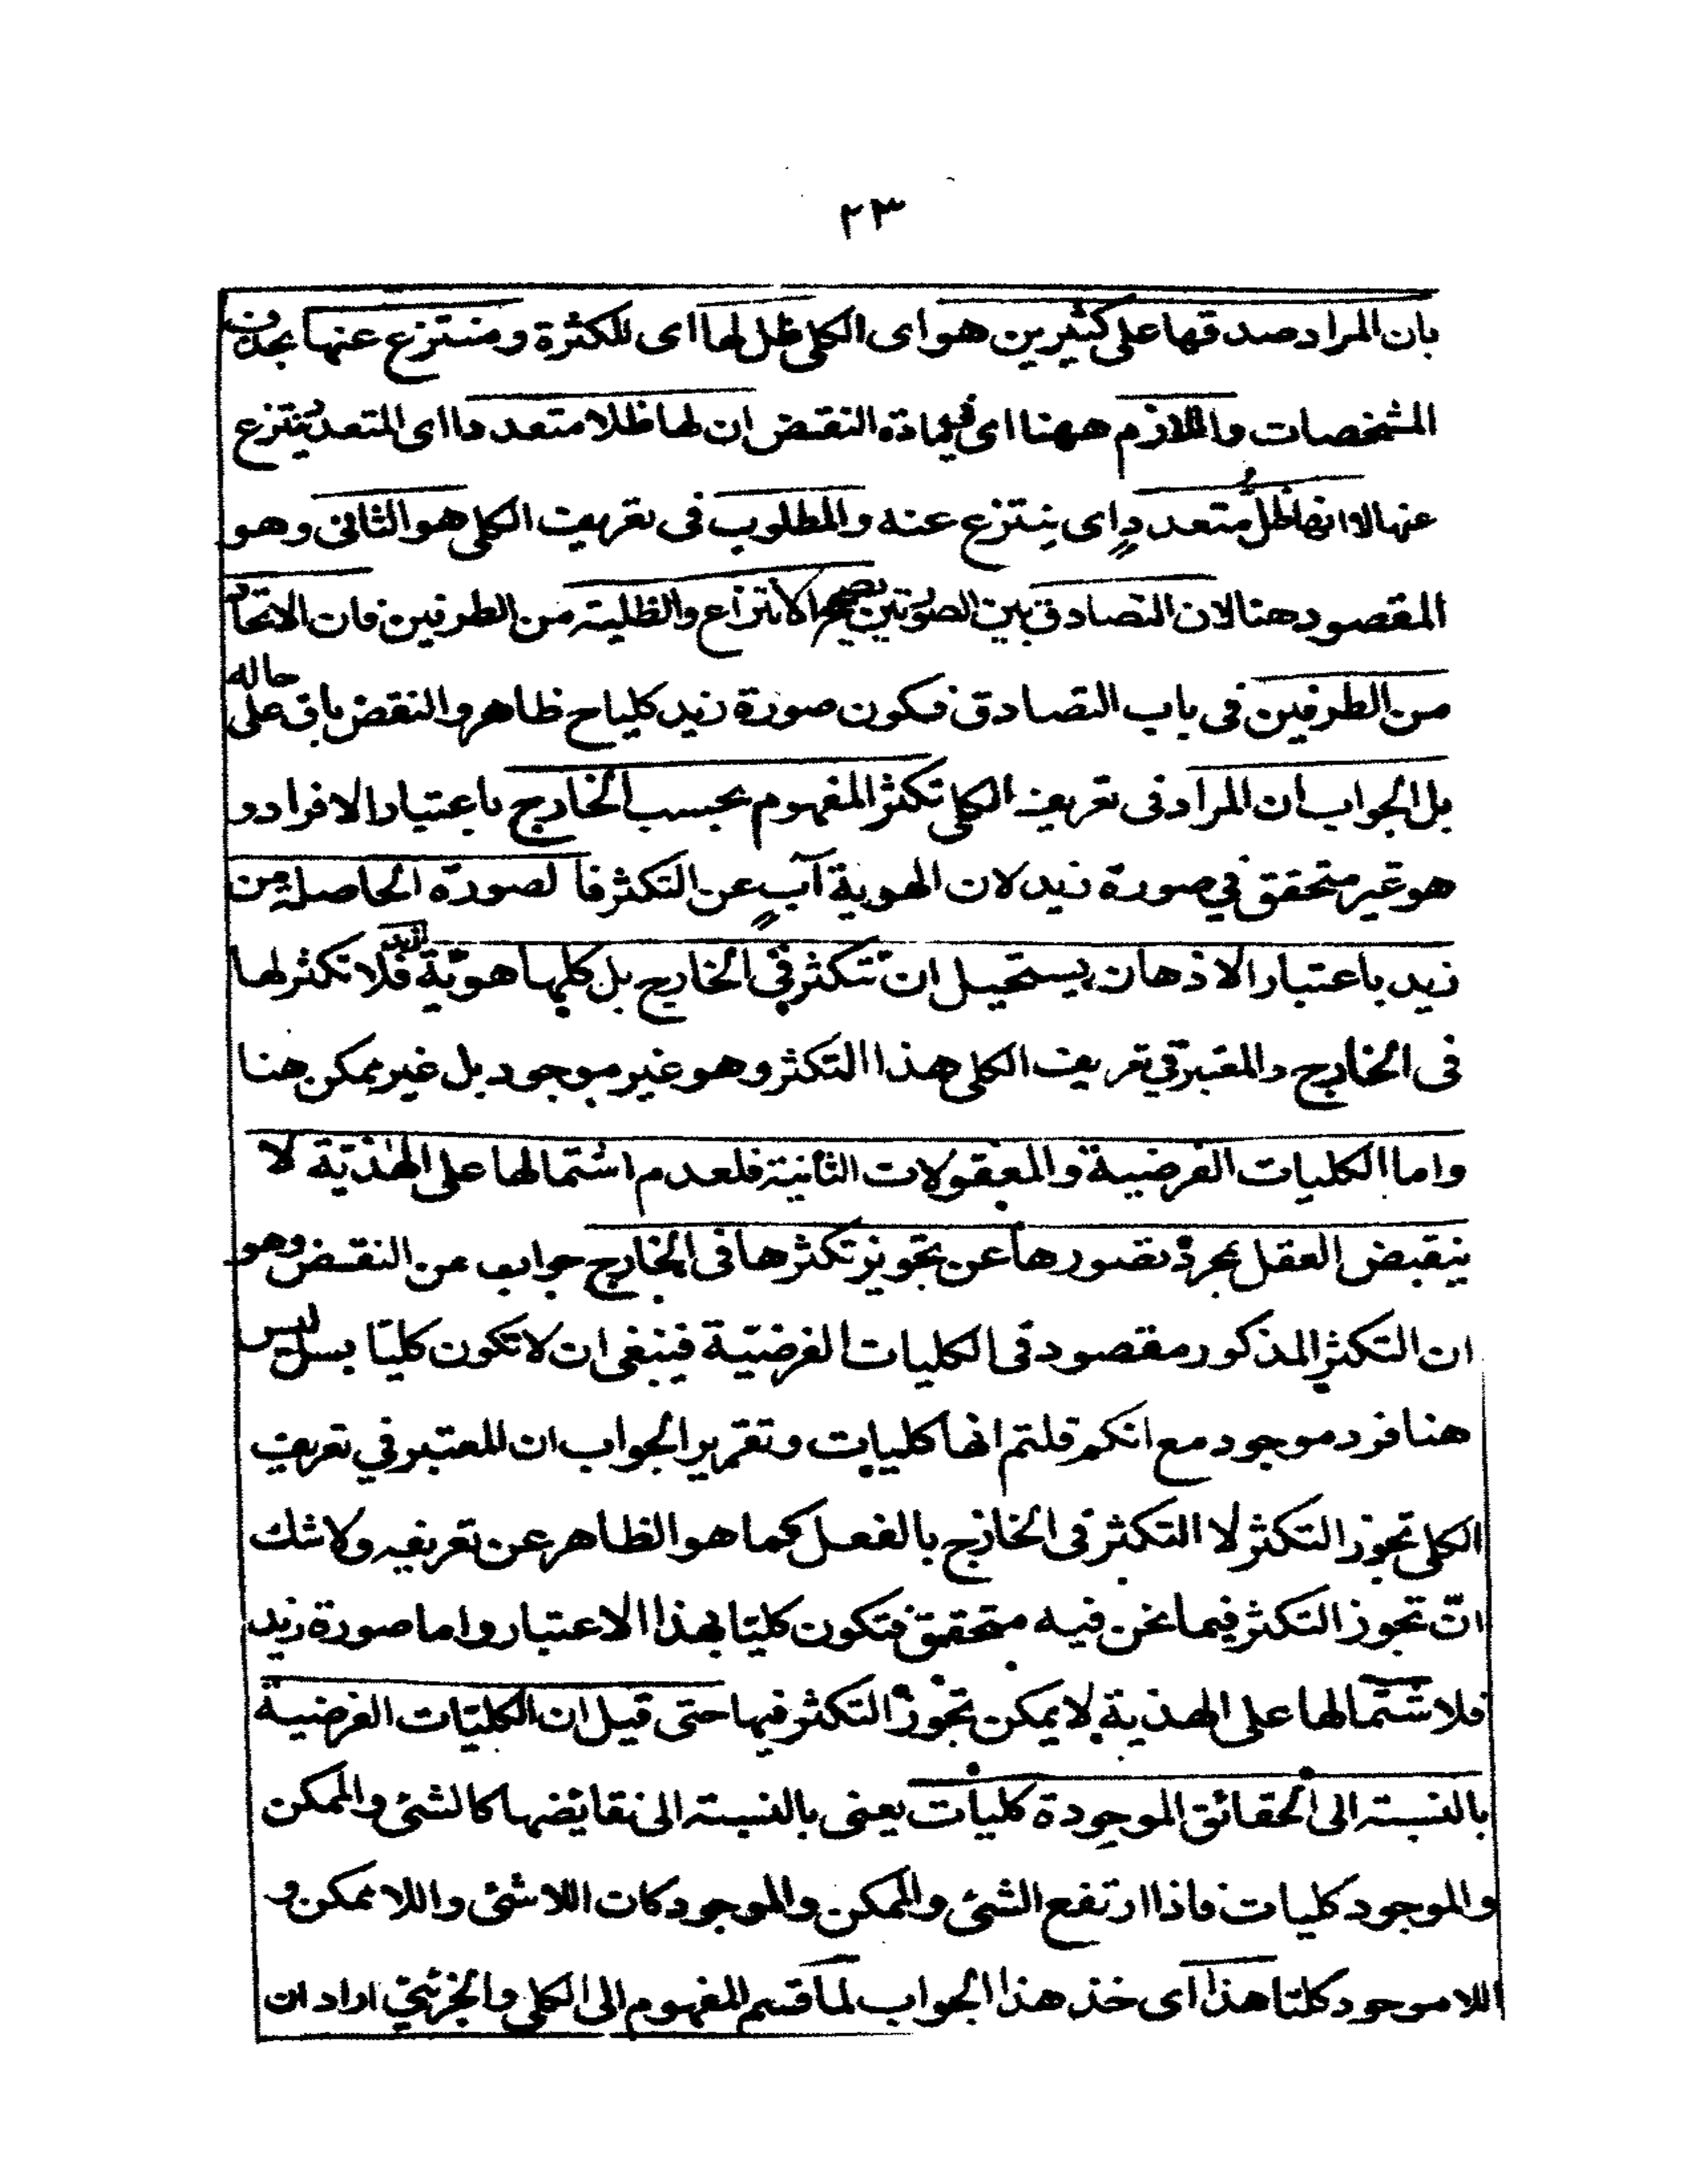 ٢٣
بان المراد صدقها على كثيرين هو اى الكلى ظل لها اى للكثرة ومنتزع عنها بحذف
المشخصات واللازم ههنا اى فيمادة النقض ان لها ظلا متعددا اى المتعدد ينتزع
عنها لا انها ظل متعدد اى ينتزع عنه والمطلوب فى تعريف الكلى هو الثانى وهو
المقصود هنا لان التصادق بين الصورتين يصحح الانتزاع والظلية من الطرفين فان الاتحاد
من الطرفين فى باب التصادق فكون صورة زيد كليا ح ظاهر والنقض باق على حاله
بل الجواب ان المراد فى تعريف الكلى تكثر المفهوم بحسب الخارج باعتبار الافراد و
هو غير متحقق في صورة زيد لان الهوية آب عن التكثر فا لصورة الحاصلة من
زيد باعتبار الاذهان يستحيل ان تتكثر في الخارج بل كلها هوية زيد فلا تكثر لها
فى الخارج والمعتبر في تعريف الكلى هذا التكثر وهو غير موجود بل غير ممكن هنا
واما الكليات الفرضية والمعقولات الثانية فلعدم اشتمالها على الهذية لا
ينقبض العقل بمجرد تصورها عن تجويز تكثرها فى الخارج جواب عن النقض وهو
ان التكثر المذكور مقصود فى الكليات الفرضية فينبغى ان لا تكون كليا بسل ليس
هنا فرد موجود مع انكم قلتم انها كليات وتقرير الجواب ان المعتبر في تعريف
الكلى تجوز التكثر لا التكثر فى الخارج بالفعل كما هو الظاهر عن تعريفه ولا شك
ان تجوز التكثر فيما نحن فيه متحقق فتكون كليا بهذا الاعتبار واما صورة زيد
فلاشتمالها على الهذية لا يمكن تجوز التكثر فيها حتى قيل ان الكليات الفرضية
بالنسبة الى الحقائق الموجودة كليات يعنى بالنسبة الى نقائضها كالشئ والممكن
والموجود كليات فاذا ارتفع الشئ والممكن والموجود كان اللا شئ واللا ممكن و
اللا موجود كليا هذا اى خذ هذا الجواب لما قسم المفهوم الى الكلى والجزئي اراد ان